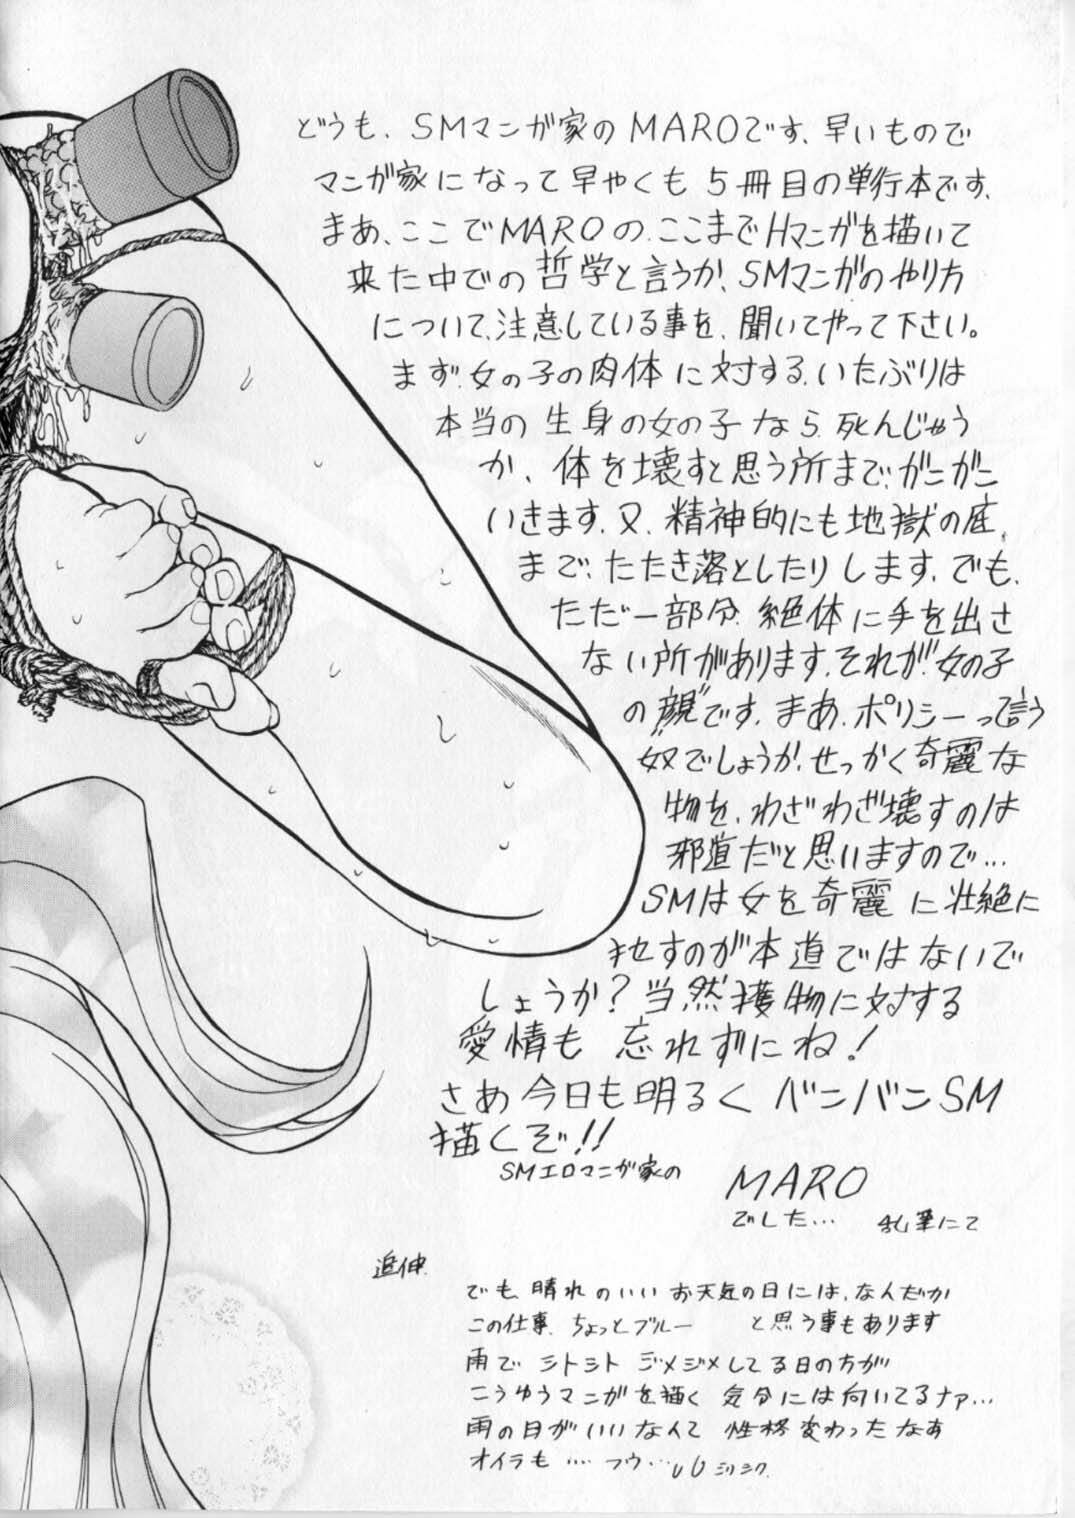 どうも、SMマンガ家のMAROです、早いもので
マンガ家になって早やくも5冊目の単行本です、
まあ、ここでMAROの、ここまでHマンガを描いて
来た中での哲学と言うか、SMマンガのやり方
について、注意している事を、聞いてやって下さい。
まず、女の子の肉体に対する、いたぶりは
本当の生身の女の子なら、死んじゃう
か、体を壊すと思う所まで、ガンガン
いきます、又、精神的にも地獄の底、
まで、たたき落としたりします、でも、
ただ一部分、絶体に手を出さ
ない所があります、それが、女の子
の"顔"です、まあ、ポリシーって言う
奴でしょうか、せっかく奇麗な
物を、わざわざ壊すのは
邪道だと思いますので…
SMは女を奇麗に壮絶に
すのが本道ではないで
しょうか？当然獲物に対する
愛情も忘れずにね！
さあ今日も明るくバンバンSM
描くぞ!!
SMエロマンガ家の
MARO
でした… 乱筆にて
追伸、
でも、晴れのいいお天気の日には、なんだか
この仕事、ちょっとブルー と思う事もあります
雨でシトシトジメジメしてる日の方が
こうゆうマンガを描く気分には向いてるナァ…
雨の日がいいなんて性格変わったなあ
オイラも‥‥フウ…